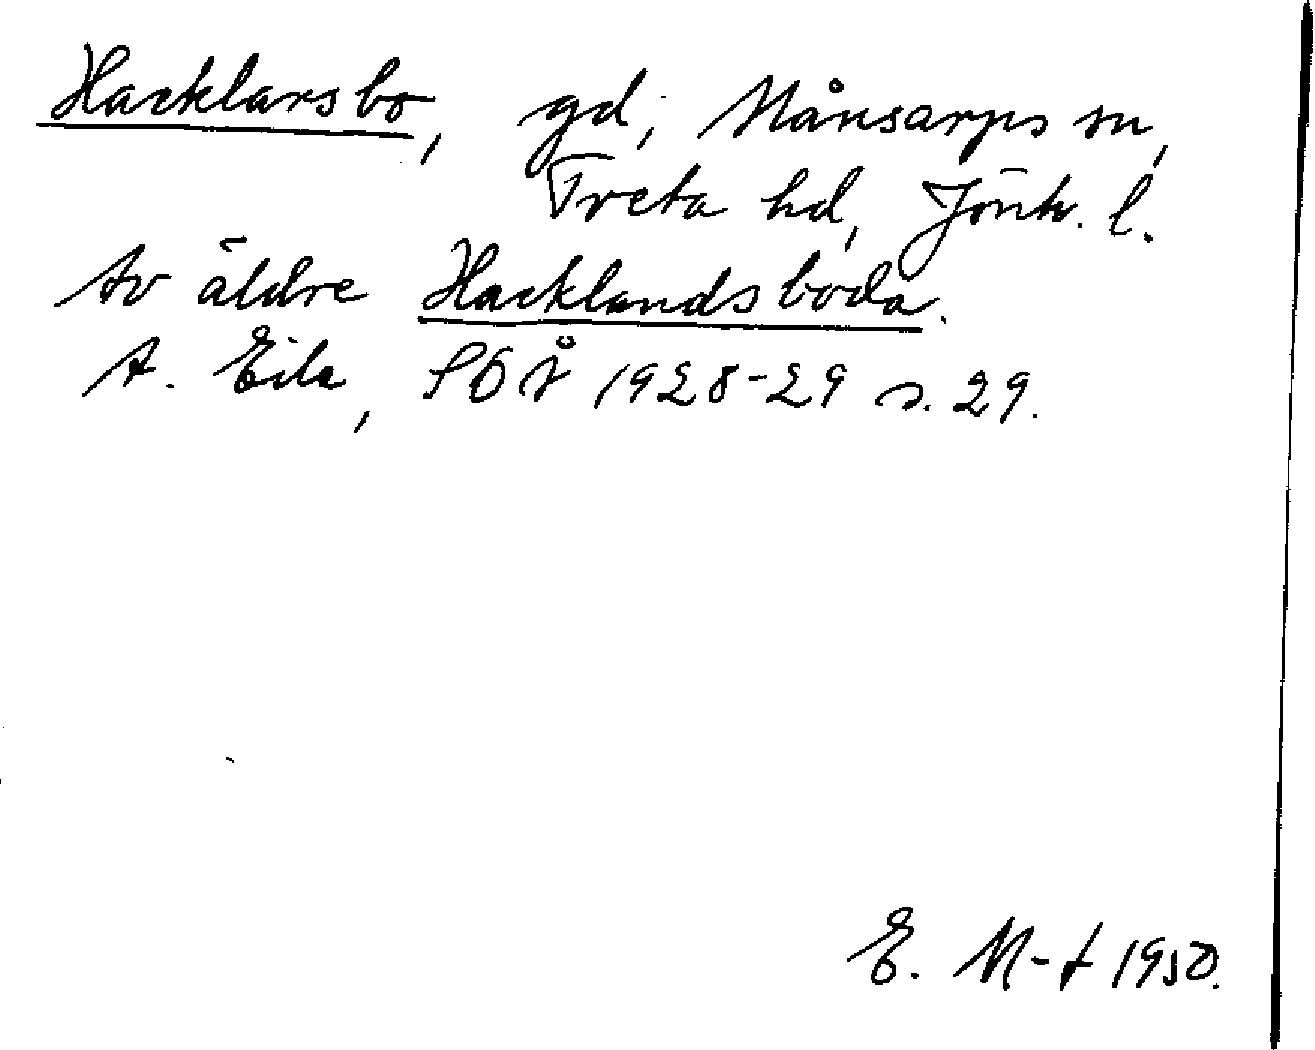 Hacklarsbo, gd, Månsarps sn,
Tveta hd, Jönk. l.
Av äldre Hacklandsboda.
A. Eila, SOÅ 1928-29 s. 29.
E. M-t 1950.